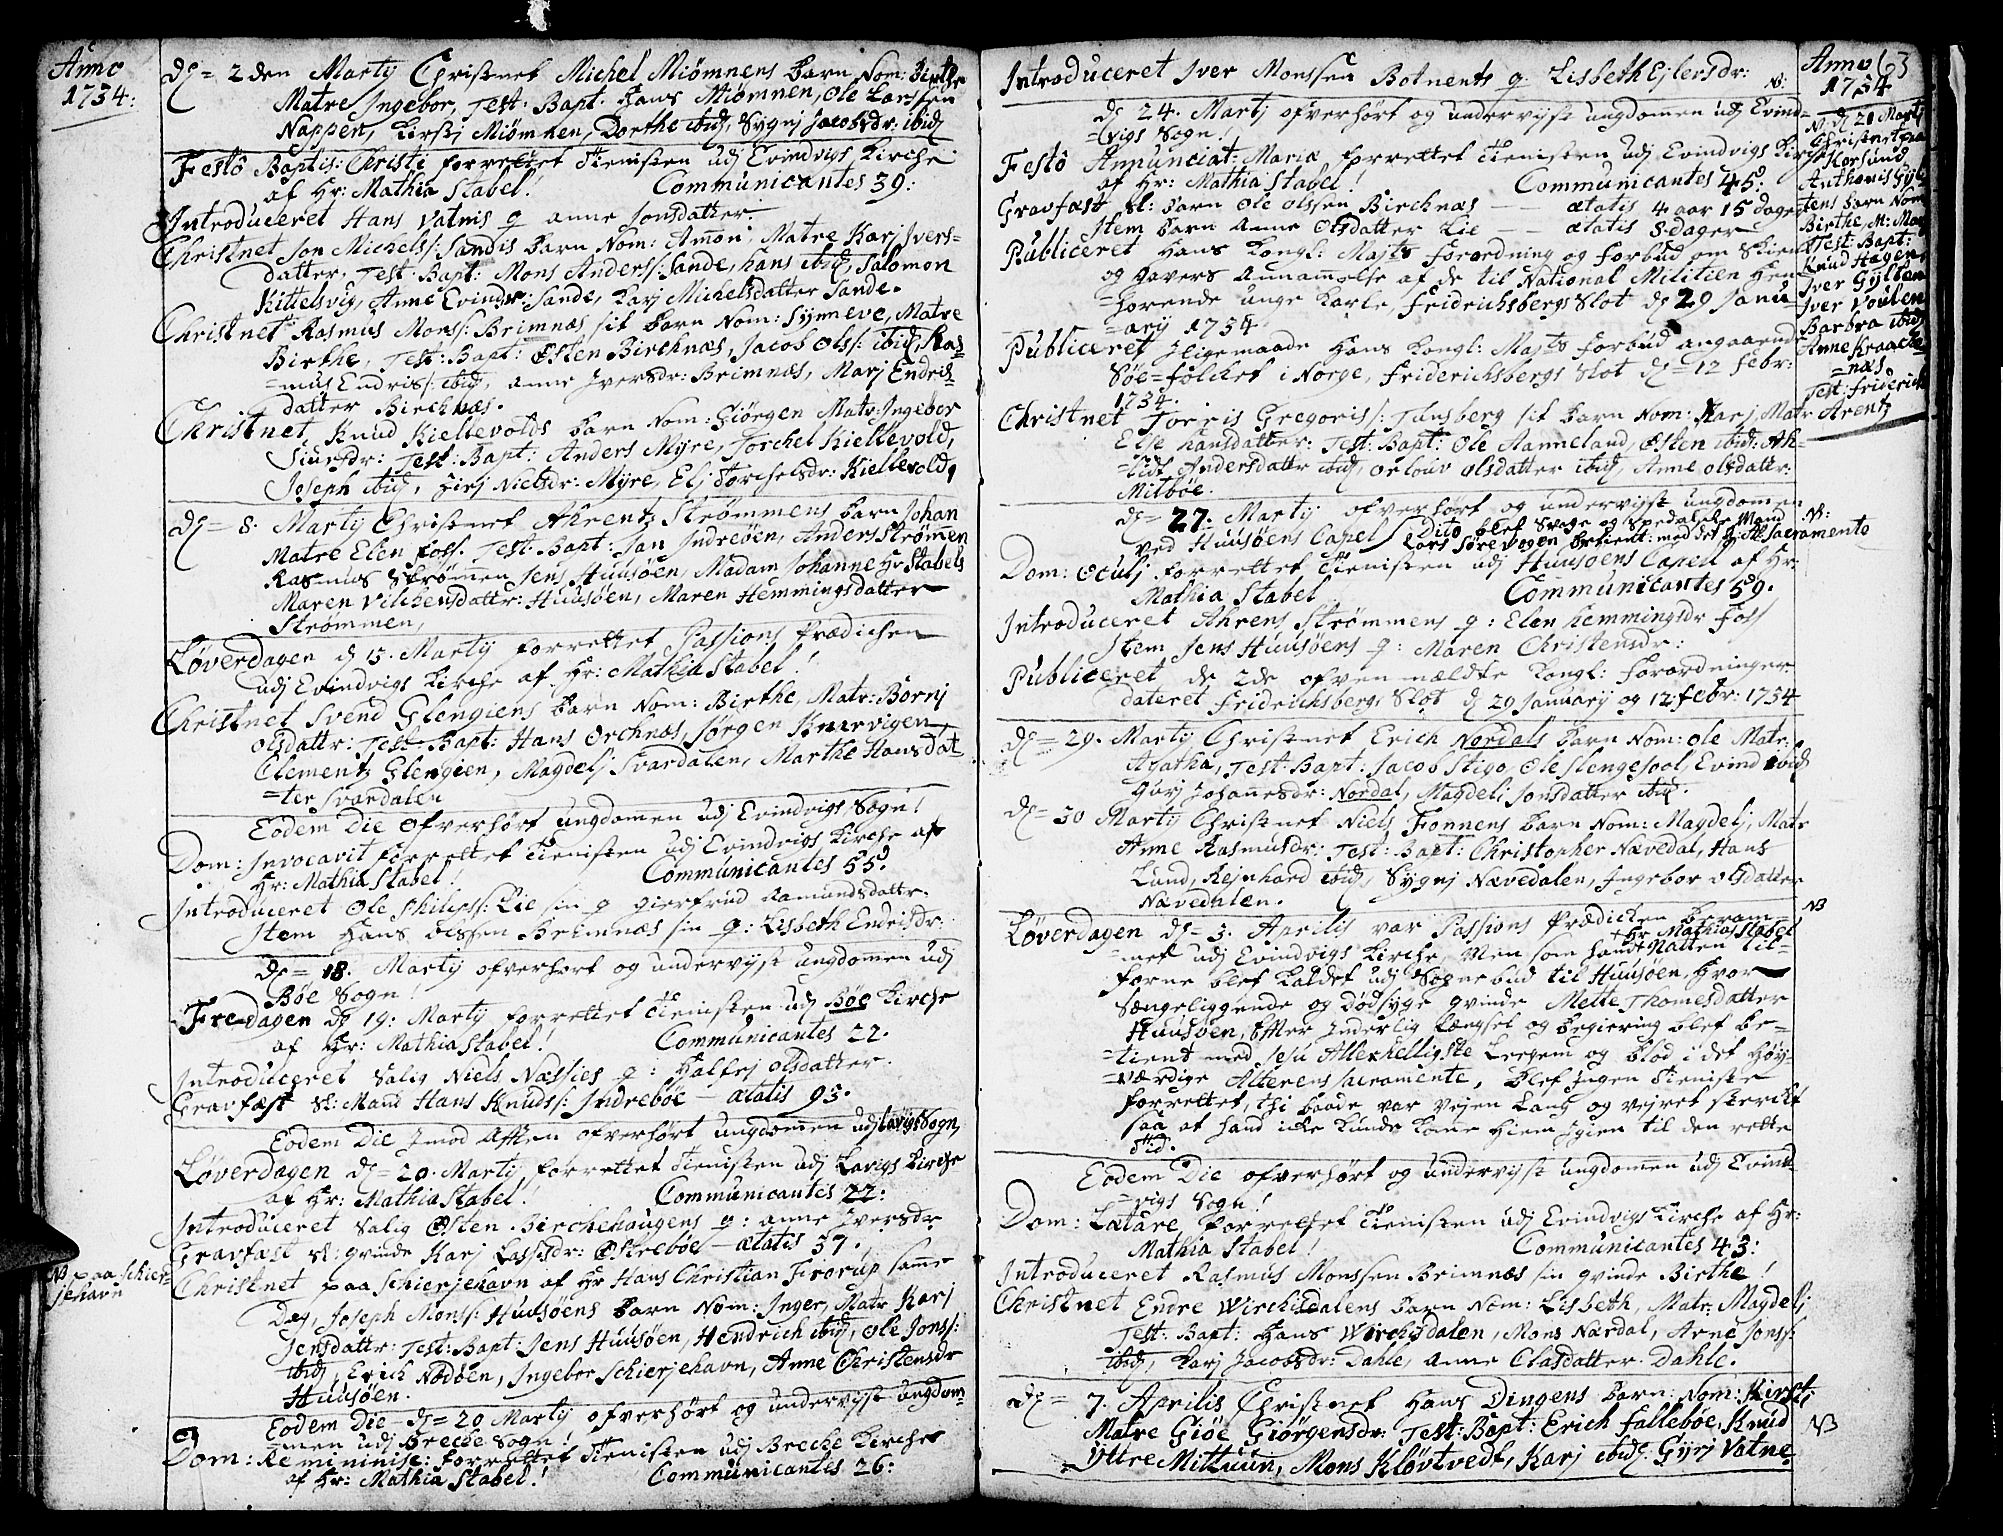 Anno
1734:
d= 2den Martij Christnet Michel Miømnens barn Nom: Birthe
Matre Ingebor, Test: Bapt: Hans Miømnen, Ole Larssen
Nappen, Kirstj Miømnen, Dorthe ibid, Sygnj Jacobsdr: ibid
Festô Baptis: Christi forrettet Tienisten udj Evindvigs Kirche
af Hr: Mathia Stabel! Communicantes 39:
Introduceret Hans Vatnis q anne Jonsdatter.
Christnet Jon Michels/: Sandis barn Nom: Amon, Matre Karj Ivers-
datter. Test: Bapt: Mons Anders/: Sande, hans ibid, Salomon
Kittelsvig, Anne Evindsr: Sande, Karj Michelsdatter Sande.
Christnet Rasmus Mons/: Brimnæs sit barn Nom: Synneve, Matre
Birthe, Test: Bapt: Østen Birchnæs, Jacob Ols/: ibid, Ras-
=mus Endris/: ibid, anne Iversdr: Brimnæs, Marj Endris-
datter Birchnæs.
Christnet Knud Kiellevolds barn Nom: Giörgen Matr: Ingebor
Siursdr: Test: Bapt: Anders Myre, Torchel Kiellevold,
Joseph ibid, Sirj Nielsdr: Myre, Elj Torchelsdr: Kiellevold,
d= 8. Martij Christnet Ahrentz Strømmens barn Johan
Matre Elen Foss. Test: Bapt: Jan Indreöen, Anders Strømen
Rasmus Strømen Jens Huusøen, Madam Johanne Hr Stabels
Maren Vilchensdattr: Huusøen, Maren Hemmingsdatter
Strømmen,
Løverdagen d 13. Martij forrettet Passions Prædichen
udj Evindvigs Kirche af Hr: Mathia Stabel!
Christnet Svend Glengiens barn Nom: Birthe, Matr: Børnj
olsdattr: Test: Bapt: Hans Orchnæs, Jørgen Knarvigen,
Clementz Glengien, Magdelj Svardalen, Marthe Hans dat
=ter Svardalen
Eodem Die ofverhørt ungdomen udj Evindvigs Sogn!
Dom: Invocavit forrettet Tienisten udj Evindvigs Kirche af
Hr: Mathia Stabel! Communicantes 55.
Introduceret Ole Philips/: Lie sin q gierfrud Ramundsdattr.
Item Hans olssen Brimnæs sin q: Lisbeth Endrisdr.
d= 18. Martij ofverhørt og undervijst ungdomen udj
Bøe Sogn!
Fredagen d 19: Martij forrettet Tienisten udj Bøe Kirche
af Hr: Mathia Stabel! Communicantes 22.
Introduceret Salig Niels Næssies q: Halfrj olsdatter.
Gravfæst Sl: Mand Hans Knuds/: Indrebøe — ætatis 93.
Eodem Die Imod Aften ofverhørt ungdomen udj Lavigs Sogn,
Løverdagen d= 20. Martij forrettet Tienisten udj Lavigs Kirche
af Hr: Mathia Stabel! Communicantes 22:
Introduceret Salig Østen Birchehaugens q: anne Iversdr
Gravfæst Sl: qvinde Karj Lassisdr: Østrebøe — ætatis 37.
NB paa Schier-
jehavn
Christnet paa Schierjehavn af Hr Hans Christian Frorup samme
Dag, Joseph Mons/: Huusøens barn Nom: Inger, Matr Karj
Jensdattr: Test: Bapt: Jens Huusøen, Hendrich ibid, Ole Jons/:
ibid, Erich Nødøen, Ingebor Schierjehavn, Anne Christensdr
Huusøen.
Eodem Die d= 20 Martij ofverhørt og undervijst ungdom-
=men udj Breche Sogn!
Dom: Reminise: forrettet Tienisten udj Breche Kirche
af Hr: Mathia Stabel! Communicantes 26:
Introduceret Iver Monssen Botnents q: Lisbeth Ejlersdr:
d 24. Martij ofverhørt og undervijst ungdomen udj Evind-
=vigs Sogn!
Festô Annunciat: Mariæ forrettet Tienisten udj Evindvigs Kirche
af Hr: Mathia Stabel! Communicantes 45.
Gravfæst Sl: barn Ole Olssen Birchnæs — ætatis 4 aar 15 dager
Item barn Anne Olsdatter Lie — ætatis 8 dager
Publiceret Hans Kongl: Majts Forordning og forbud om
og Gavers Annammelse af de til National Militien hen-
=hørende unge Karle, Fridrichsbergs Slot d 29 Janu
=arij 1734.
Publiceret iligemaade Hans Kongl: Majts forbud angaaende
Søe=folcket i Norge, Friderichsbergs Slot d= 12 Febr:
1734.
Christnet Torris Gregoris/: Tansberg sit barn Nom: Karj, Matr
Else hansdatter: Test: Bapt: Ole Aanneland, Østen ibid: Ah-
Andersdattr ibid, Orlouv olsdatter ibid, Anne olsdattr:
Mitbøe.
d= 27. Martij ofverhørt og undervijst ungdomen
ved Huusøens Capel / Dito blef Svage og Spedalske Mand
Lars Sørevogen betient: med det høie Sacramento
Dom: Oculj forrettet Tienisten udj Huusøens Capell af Hr:
Mathia Stabel Communicantes 59.
Introduceret Ahrens Strømmens q: Elen hemmingsdr Foss
Item Jens Huusøens q: Maren Christensdr:
Publiceret de 2de ofvenmældte Kongl: Forordninger
dateret Fridrichsbergs Slot d 29 Januarij og 12 Febr: 1734
d= 29. Martij Christnet Erich Nordals barn Nom: Ole Matr:
Agatha, Test: Bapt: Jacob Stigo, Ole Slengesool, Evind ibid
Gurj Johanesdr: Nordal, Magdelj Jonsdatter ibid.
d= 30 Martij Christnet Niels Fonnens barn Nom: Magdelj, Matr
Anne Rasmusdr: Test: Bapt: Christopher Nævedal, Hans
Lund, Rejnhard ibid, Sygnj Nævedalen, Ingebor olsdatter
Nævedalen.
Løverdagen d= 3. Aprilis var Passions Prædicken beram-
+ Hr Mathias Stabel
=met udj Evindvigs Kirche, Men som hand+ Natten til-
forne blef kaldet udj Sognebud til Huusøen, hvor
Sængeliggende og dødsyge qvinde Mette Thomesdatter
Huusøen, Efter Inderlig længsel og begiering blef be-
=tient med Jesu Allerhelligste Legem og blod i det høy-
=værdige Alterens Sacramente, blef Ingen Tieniste
forrettet, thi baade var vejen lang og vejret
saa at hand icke kunde kome hiem igien til den rette
Tid.
Eodem Die ofverhørt og undervijst ungdomen udj Evind-
=vigs Sogn!
Dom: Lætare, forrettet Tienisten udj Evindvigs Kirche af Hr:
Mathia Stabel! Communicantes 43:
Introduceret Rasmus Monssen Brimnæs sin qvinde Birthe!
Christnet Endre Wirchisdalens barn Nom: Lisbeth, Matr: Magdelj
Test: Bapt: Hans Wirchsdalen, Mons Nærdal, Arne Jons/:
ibid, Karj Jacobsdr: Dahle, Anne Clasdatter Dahle.
d= 7. Aprilis Christnet Hans Dingens barn: Nom: Kirstj
Matre Giøe Giørgensdr: Test: Bapt: Erich Fallebøe, Knud
Yttre Mittuun, Mons Kløvtvedt, Karj ibid. Gyrj Vatne
Anno 63
1734
N: d 21 Martij
Christnet paa
Korsund
Anthonis Gyl-
tens barn Nom
Birthe, M: Marj
Test: Bapt:
Knud Hagen
Iver Gylten
Iver Voulen
Barbra ibid
Anne Kraache
=næs
Test: friderich
Arentz
N:
NB
NB